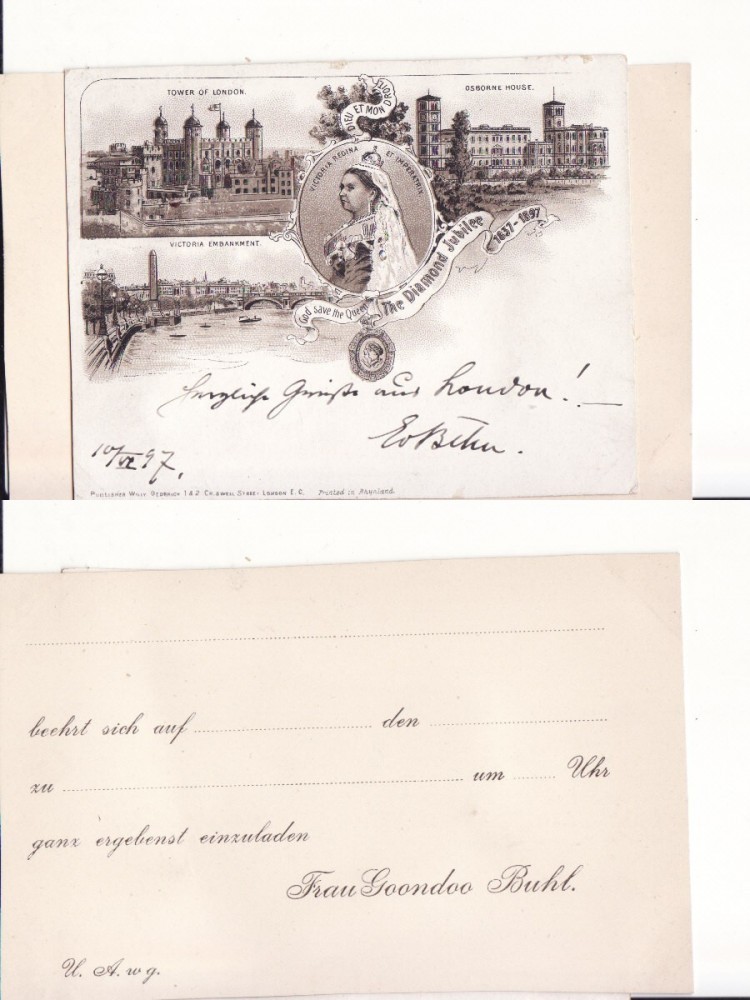 TOWER OF LONDON.
OSBORNE HOUSE.
DIEU ET MON DROIT
VICTORIA REGINA ET IMPERATRIX
VICTORIA EMBANKMENT.
God save the Queen
The Diamond Jubilee
1837-1897
Herzliche Grüße aus London!
10/VI 97.
PUBLISHER WILLY 1 & 2 STREET LONDON E. C. Printed in Rhineland.
beehrt sich auf den
zu um Uhr
ganz ergebenst einzuladen
Frau Goondoo Buhl.
U. A. w g.